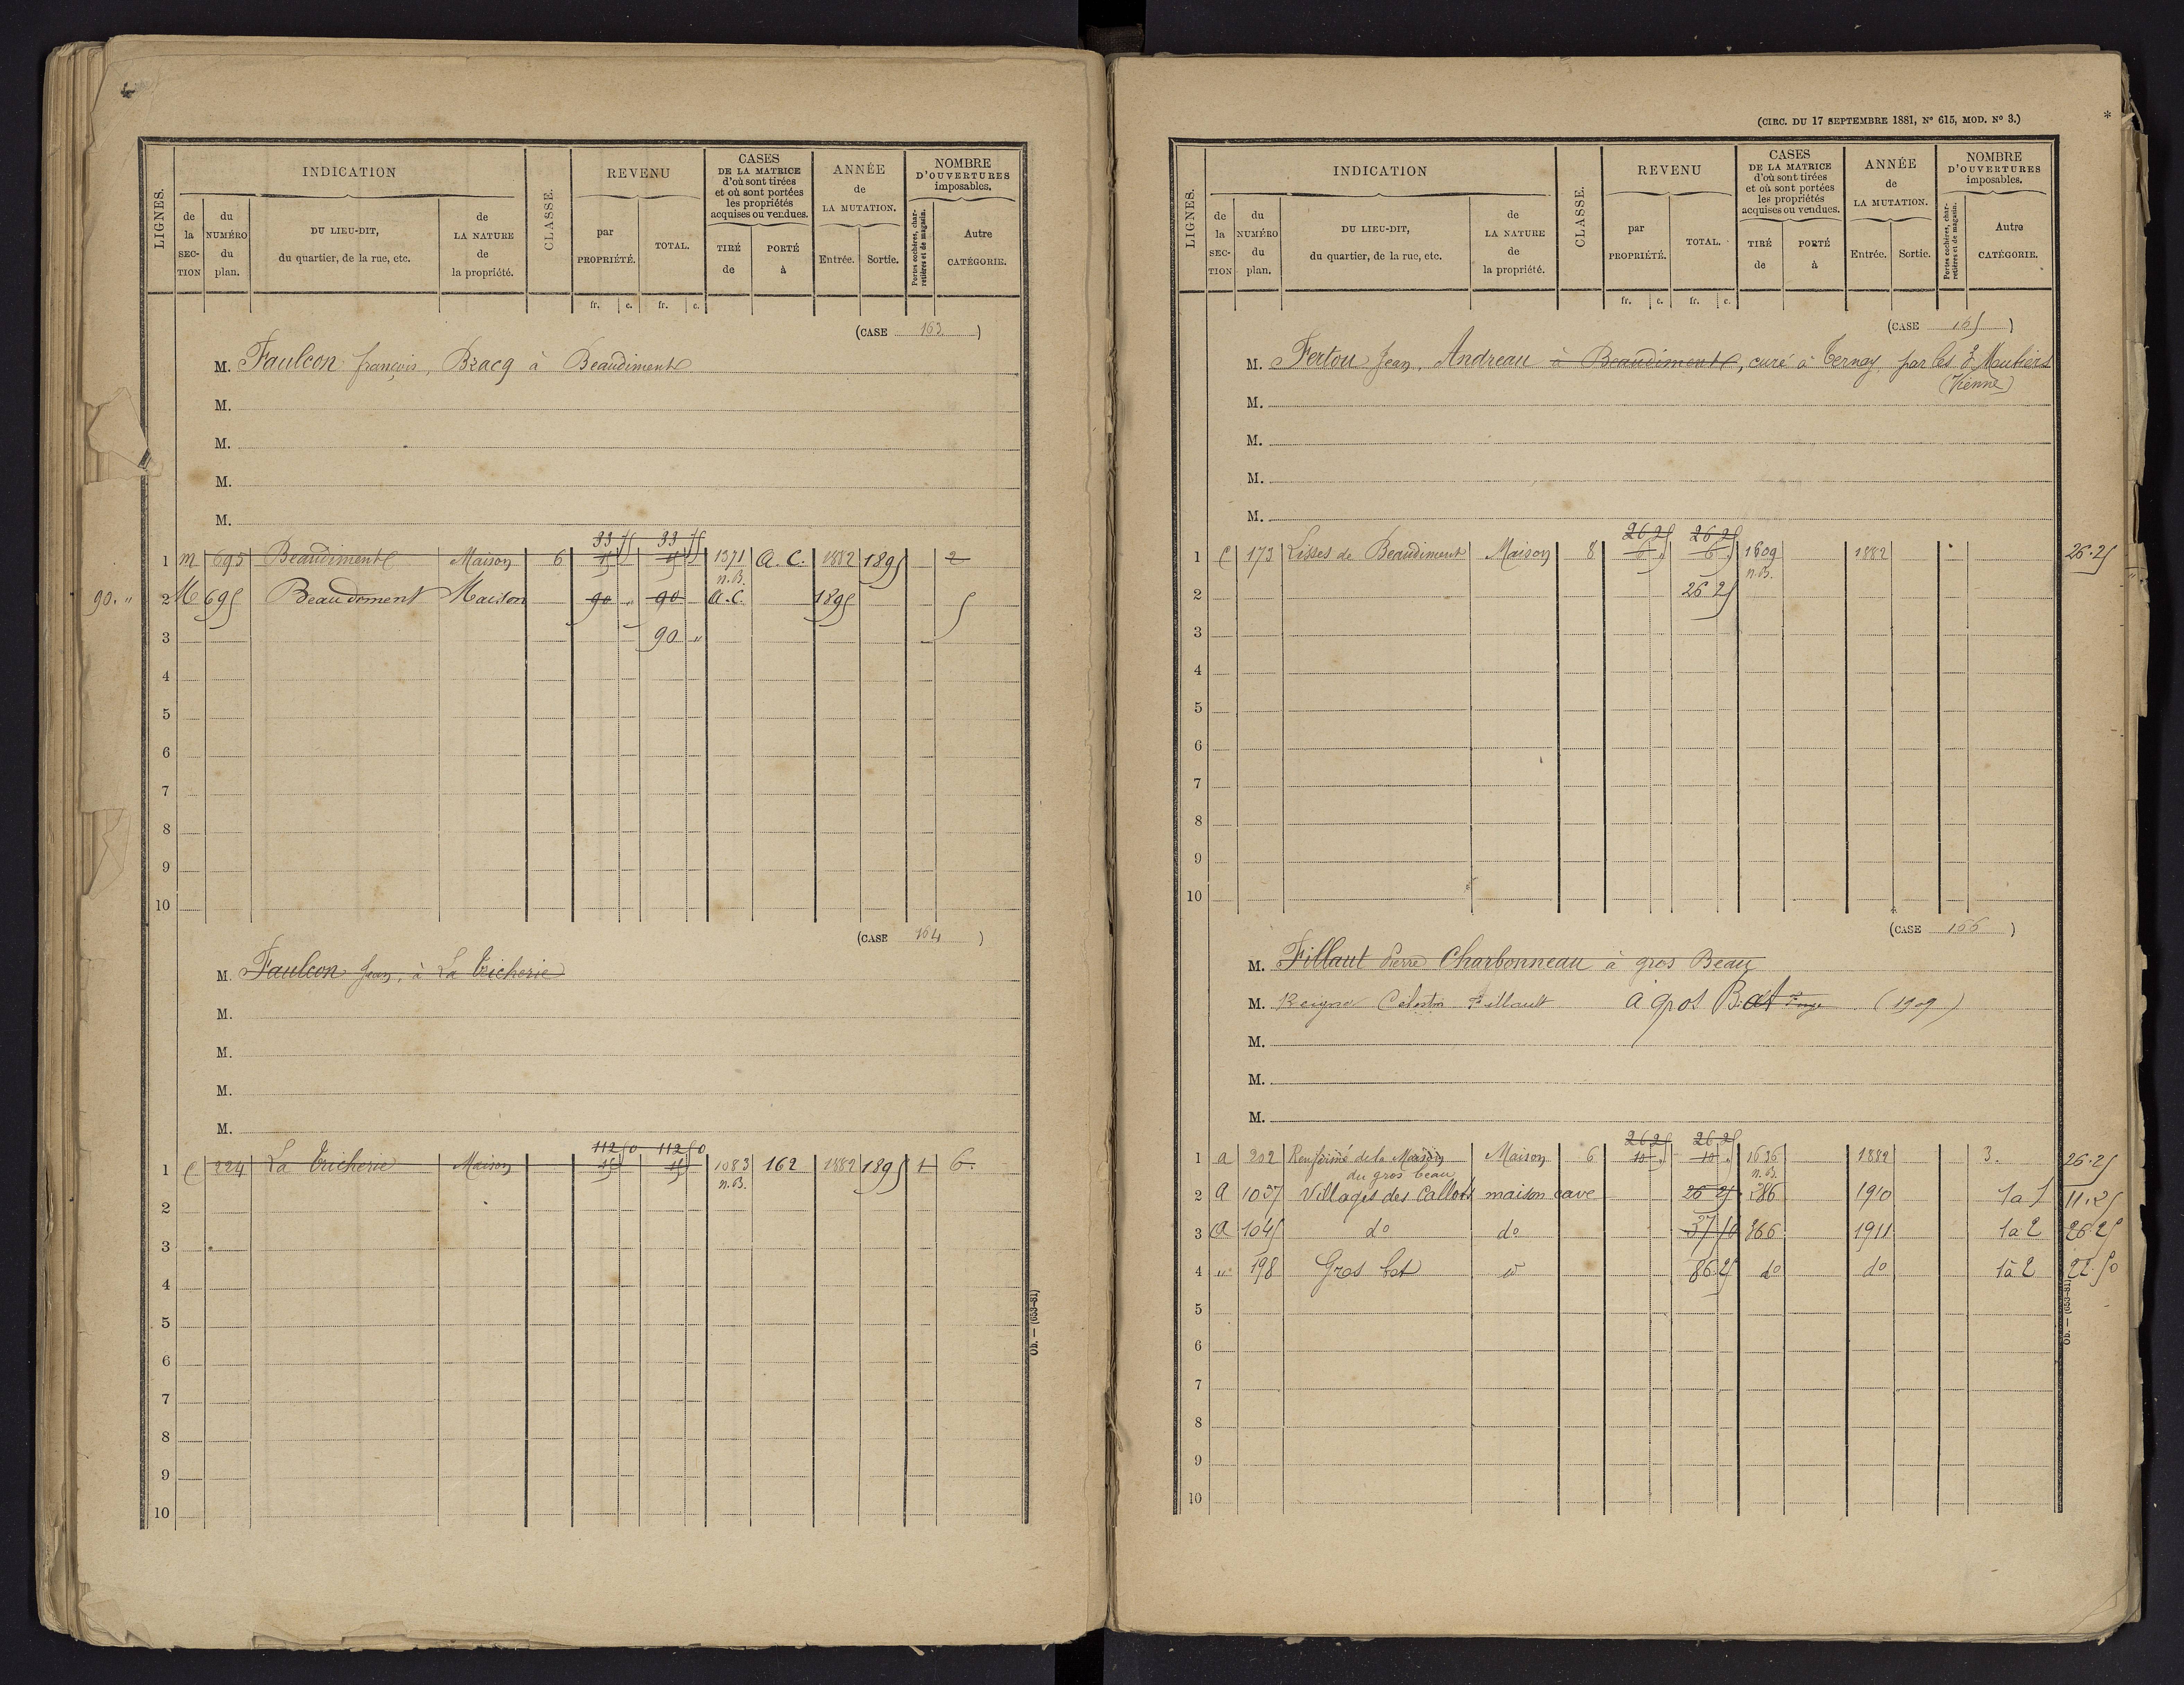 LIGNES.
INDICATION
de la SECTION
du NUMÉRO du plan.
DU LIEU-DIT, du quartier, de la rue, etc.
de LA NATURE de la propriété.
CLASSE.
REVENU
par PROPRIÉTÉ.
TOTAL.
fr. c. fr. c.
CASES DE LA MATRICE d'où sont tirées et où sont portées les propriétés acquises ou vendues.
TIRÉ de
PORTÉ à
ANNÉE de LA MUTATION.
Entrée. Sortie.
NOMBRE D'OUVERTURES imposables.
Portes cochères, charretières et de magasin.
Autre CATÉGORIE.
(CASE 163)
M. Faulcon françois, Bracq à Beaudiment
M.
M.
M.
M.
33 75 33 75
1 M 695 Beaudiment Maison 6 15 15 1371 A.C. 1882 1895 2
n.B.
90. " 2 M 695 Beaudiment Maison 90 " 90 A.C. 1895 5
3 90 "
4
5
6
7
8
9
10
(CASE 164)
M. Faulcon Jean, à La Tricherie
M.
M.
M.
M.
112 50 112 50
1 C 224 La Tricherie Maison 45 45 1083 162 1882 1895 1 6.
n.B.
2
3
4
5
6
7
8
9
10
Ob. — (653-81)
(CIRC. DU 17 SEPTEMBRE 1881, Nº 615, MOD. Nº 3.)
*
LIGNES.
INDICATION
de la SECTION
du NUMÉRO du plan.
DU LIEU-DIT, du quartier, de la rue, etc.
de LA NATURE de la propriété.
CLASSE.
REVENU
par PROPRIÉTÉ.
TOTAL.
fr. c. fr. c.
CASES DE LA MATRICE d'où sont tirées et où sont portées les propriétés acquises ou vendues.
TIRÉ de
PORTÉ à
ANNÉE de LA MUTATION.
Entrée. Sortie.
NOMBRE D'OUVERTURES imposables.
Portes cochères, charretières et de magasin.
Autre CATÉGORIE.
(CASE 165)
M. Fertou Jean, Andreau à Beaudiment, curé à Ternay par les 3 Moutiers
(Vienne)
M.
M.
M.
M.
26 25 26 25
1 C 173 Lisses de Beaudiment Maison 8 6 " 6 " 1609 1882 26.25
n.B.
2 26 25
3
4
5
6
7
8
9
10
(CASE 166)
M. Fillaut Pierre Charbonneau à gros Beau
M. Célestin Fillault à gros Bât (1909)
M.
M.
M.
26 25 26 25
1 A 202 Renfermé de la Maison Maison 6 10 " 10 " 1636 1882 3. 26.25
du gros beau n.B.
2 A 1037 Villages des Callots maison cave 26 25 186 1910 1 a 1 11.25
3 A 1045 dº dº 37 50 866 1911 1 a 2 26.25
4 " 198 Gros bat dº 86.25 dº dº 1 à 2 22.50
5
6
7
8
9
10
Ob. — (653-81)